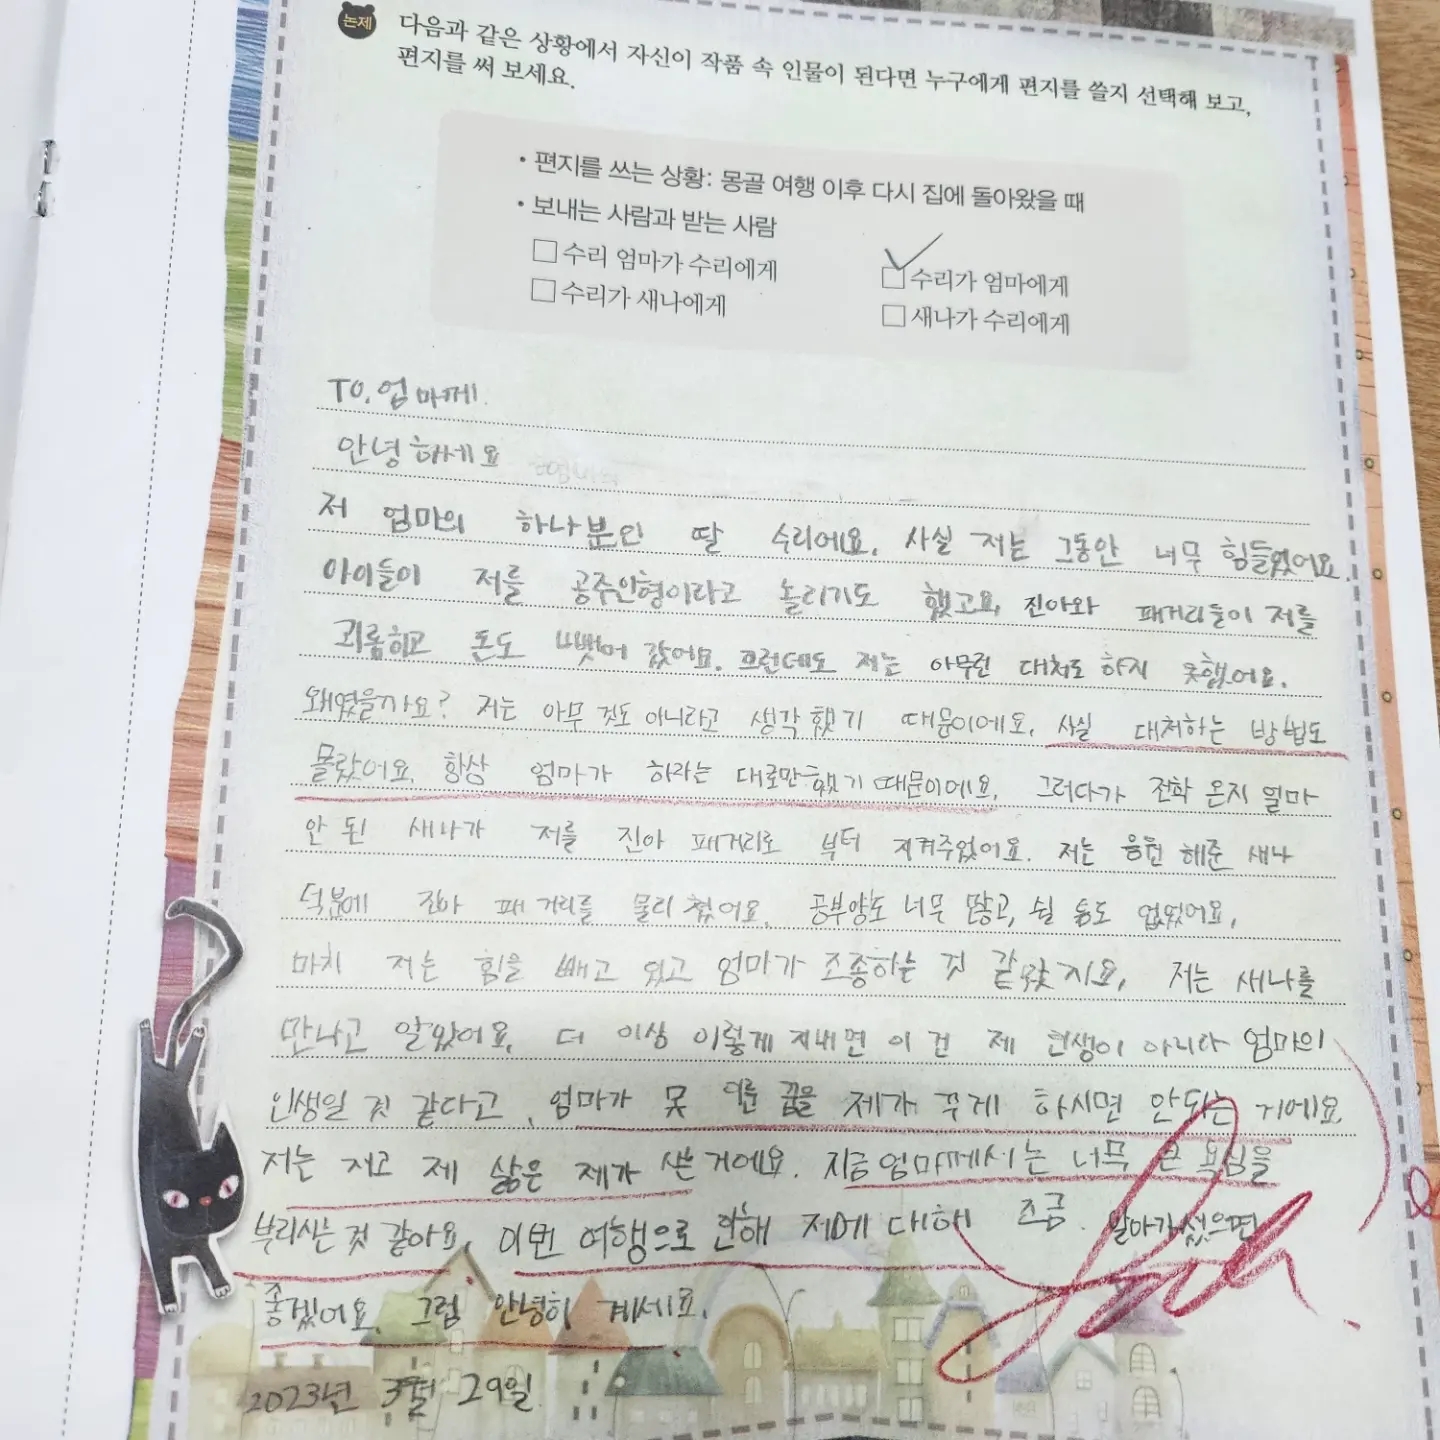 논제
다음과 같은 상황에서 자신이 작품 속 인물이 된다면 누구에게 편지를 쓸지 선택해 보고,
편지를 써 보세요.
• 편지를 쓰는 상황: 몽골 여행 이후 다시 집에 돌아왔을 때
• 보내는 사람과 받는 사람
□ 수리 엄마가 수리에게 ☑ 수리가 엄마에게
□ 수리가 새나에게 □ 새나가 수리에게
TO. 엄마께.
안녕하세요
저 엄마의 하나분인 딸 수리에요. 사실 저는 그동안 너무 힘들었어요.
아이들이 저를 공주인형이라고 놀리기도 했고요, 진아와 패거리들이 저를
괴롭히고 돈도 뺏어 갔어요. 그런데도 저는 아무런 대처도 하지 못했어요.
왜였을까요? 저는 아무 것도 아니라고 생각했기 때문이에요. 사실 대처하는 방법도
몰랐어요. 항상 엄마가 하라는 대로만 했기 때문이에요. 그러다가 전학 온지 얼마
안 된 새나가 저를 진아 패거리로 부터 지켜주었어요. 저는 응원 해준 새나
덕분에 진아 패거리를 물리쳤어요. 공부양도 너무 많고, 쉴 틈도 없었어요.
마치 저는 힘을 빼고 있고 엄마가 조종하는 것 같았지요. 저는 새나를
만나고 알았어요. 더 이상 이렇게 지내면 이건 제 인생이 아니라 엄마의
인생일 것 같다고. 엄마가 못 이룬 꿈을 제가 꾸게 하시면 안되는 거에요
저는 저고 제 삶은 제가 사는 거에요. 지금 엄마께서는 너무 큰 욕심을
부리시는 것 같아요. 이번 여행으로 인해 저에 대해 조금 알아가셨으면
좋겠어요. 그럼 안녕히 계세요.
2023년 3월 29일